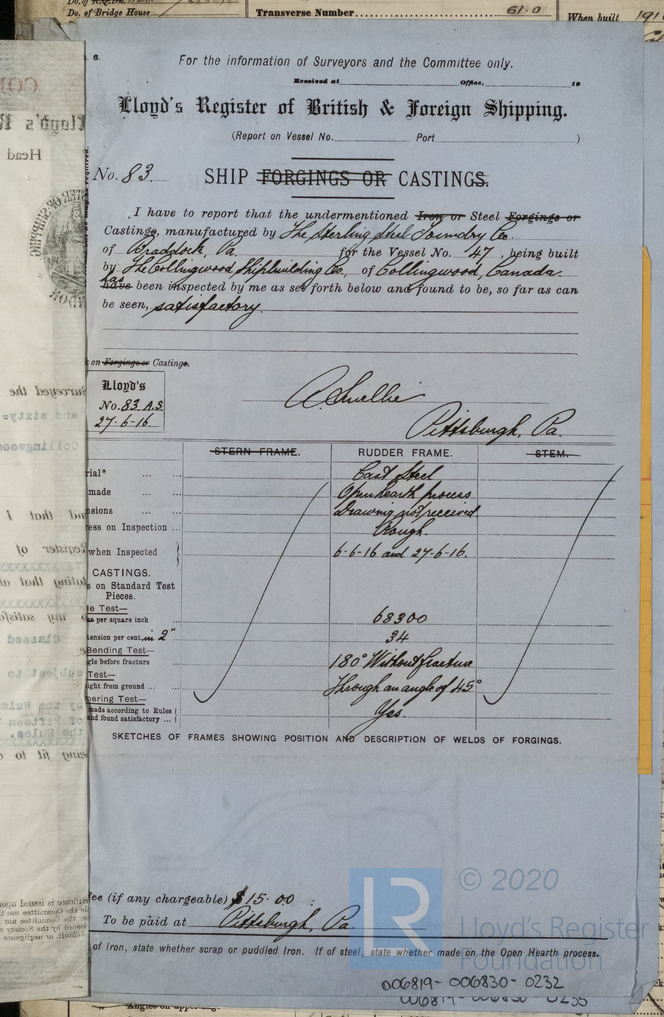 Do. of Bridge House
Transverse Number 61.0
When built 191
6.
For the information of Surveyors and the Committee only.
Received at Office, 19
Lloyd's Register of British & Foreign Shipping.
(Report on Vessel No. Port )
No. 83.
SHIP FORGINGS OR CASTINGS.
I have to report that the undermentioned Iron or Steel Forgings or
Castings, manufactured by The Sterling Steel Foundry Co.
of Braddock, Pa. for the Vessel No. 47, being built
by The Collingwood Shipbuilding Co., of Collingwood, Canada
has
have been inspected by me as set forth below and found to be, so far as can
be seen, satisfactory.
on Forgings or Castings.
Lloyd's
No. 83 A.S.
27-6-16.
A. Smellie
Pittsburgh, Pa.
STERN FRAME. RUDDER FRAME. STEM.
rial* ... ... Cast Steel
made ... ... Open hearth process
nsions ... ... Drawing not received
ess on Inspection ... Rough.
when Inspected } 6-6-16 and 27-6-16.
CASTINGS.
s on Standard Test
Pieces.
le Test—
per square inch 68300
tension per cent. in 2" 34
Bending Test—
gle before fracture 180° Without fracture
Test—
ight from ground ... ... Through an angle of 45°
ering Test—
made according to Rules
and found satisfactory ... Yes.
SKETCHES OF FRAMES SHOWING POSITION AND DESCRIPTION OF WELDS OF FORGINGS.
Fee (if any chargeable) $15.00 :
To be paid at Pittsburgh, Pa.
of Iron, state whether scrap or puddled Iron. If of steel, state whether made on the Open Hearth process.
© 2020
LR
Lloyd's Register
Foundation
006819-006830-0232